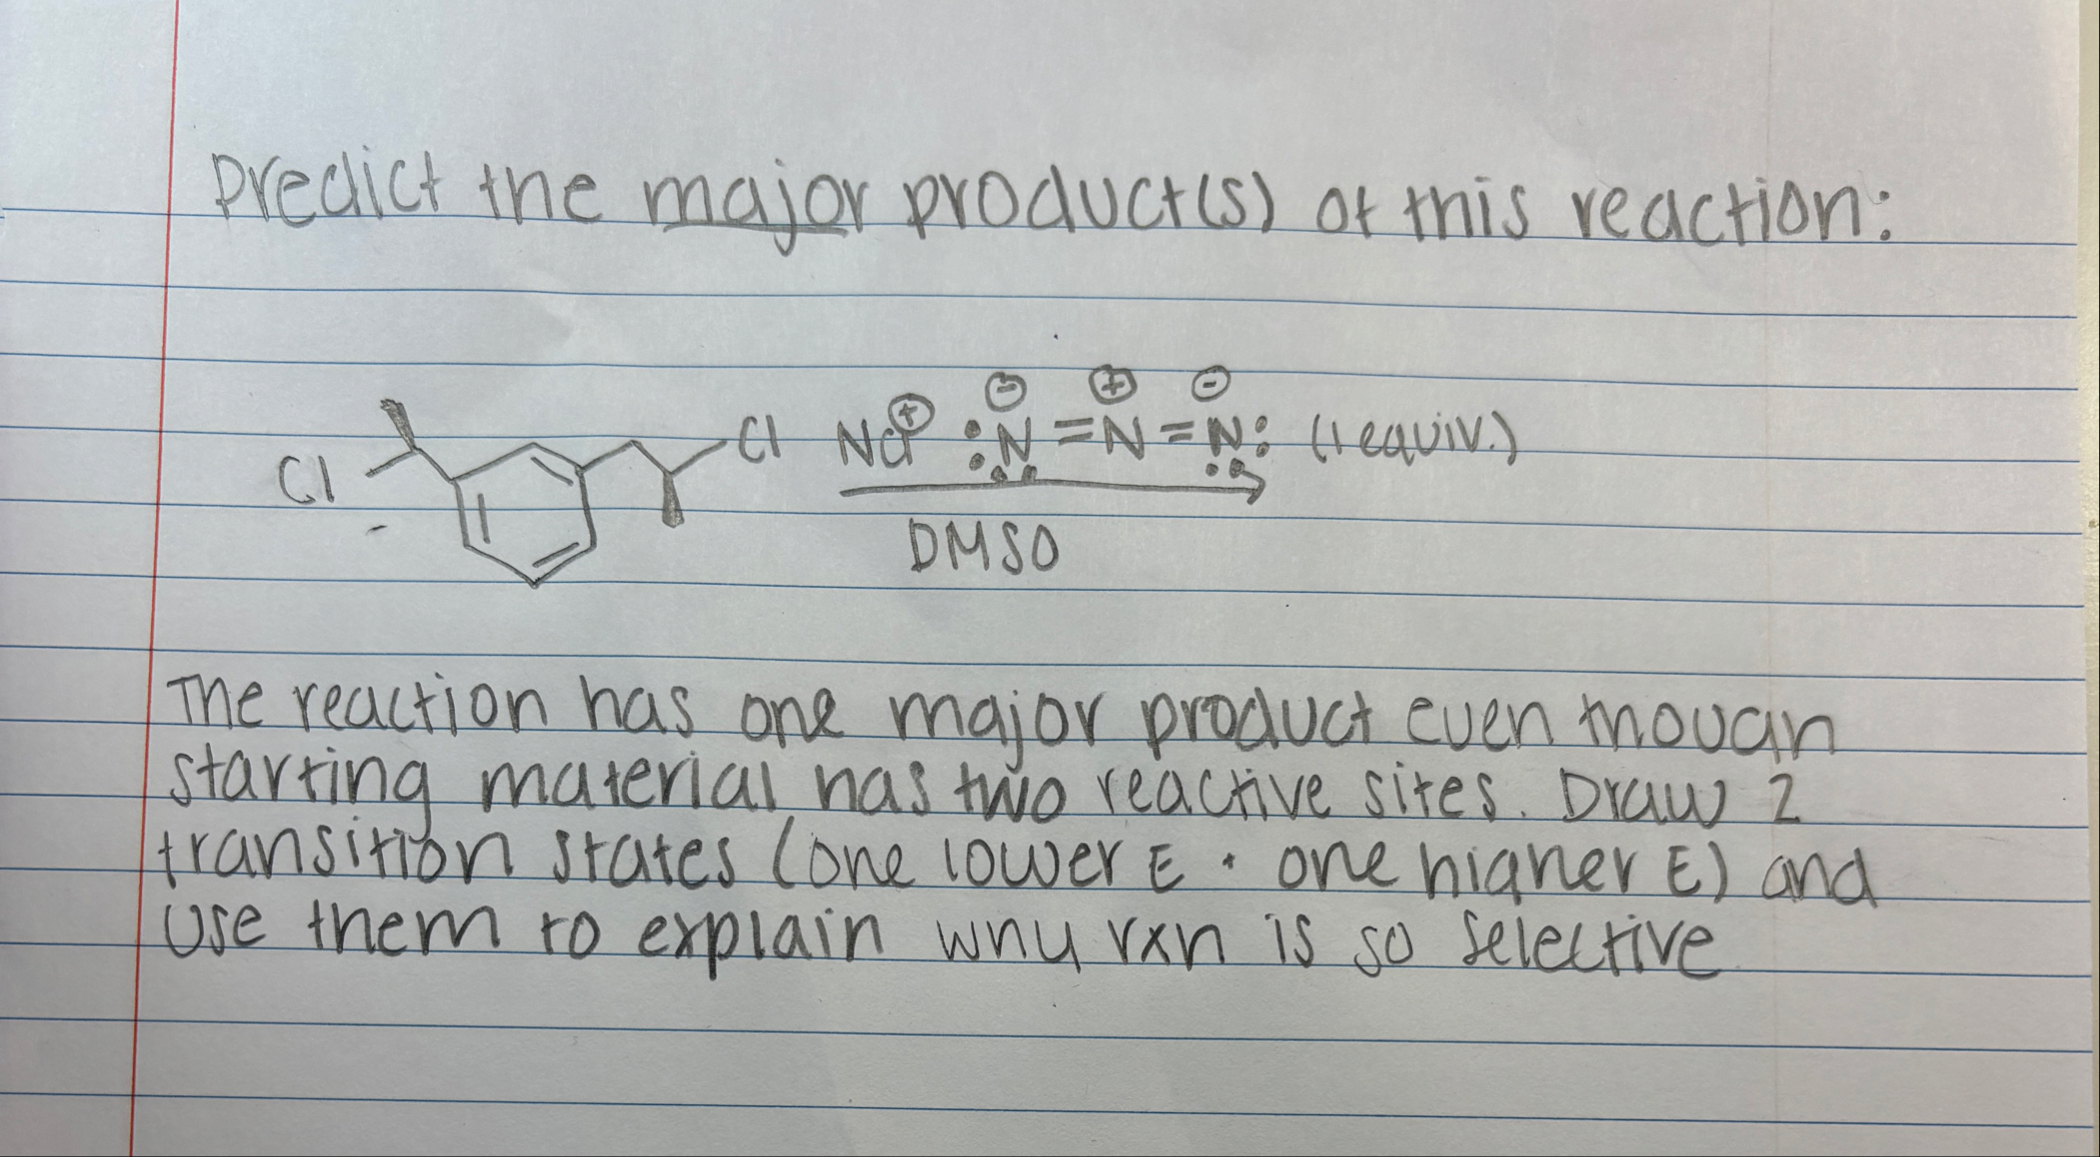 predict the major product(s) of this reaction:
Cl
Cl Na⊕ :N̈=N=N̈: (1 equiv.)
⊖ ⊕ ⊖
DMSO
The reaction has one major product even though
starting material has two reactive sites. Draw 2
transition states (one lower E + one higher E) and
use them to explain why rxn is so selective